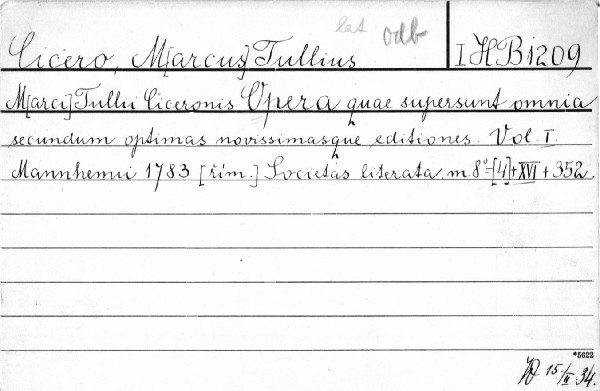 lat odb
Cicero, M[arcus] Tullius I H B 1209
M[arci] Tullii Ciceronis Opera quae supersunt omnia
secundum optimas novissimasque editiones. Vol. I.
Mannhemii 1783 [řím.] Societas literata. m 8°=[4]+XVI+352.
*5622
15/II 34.